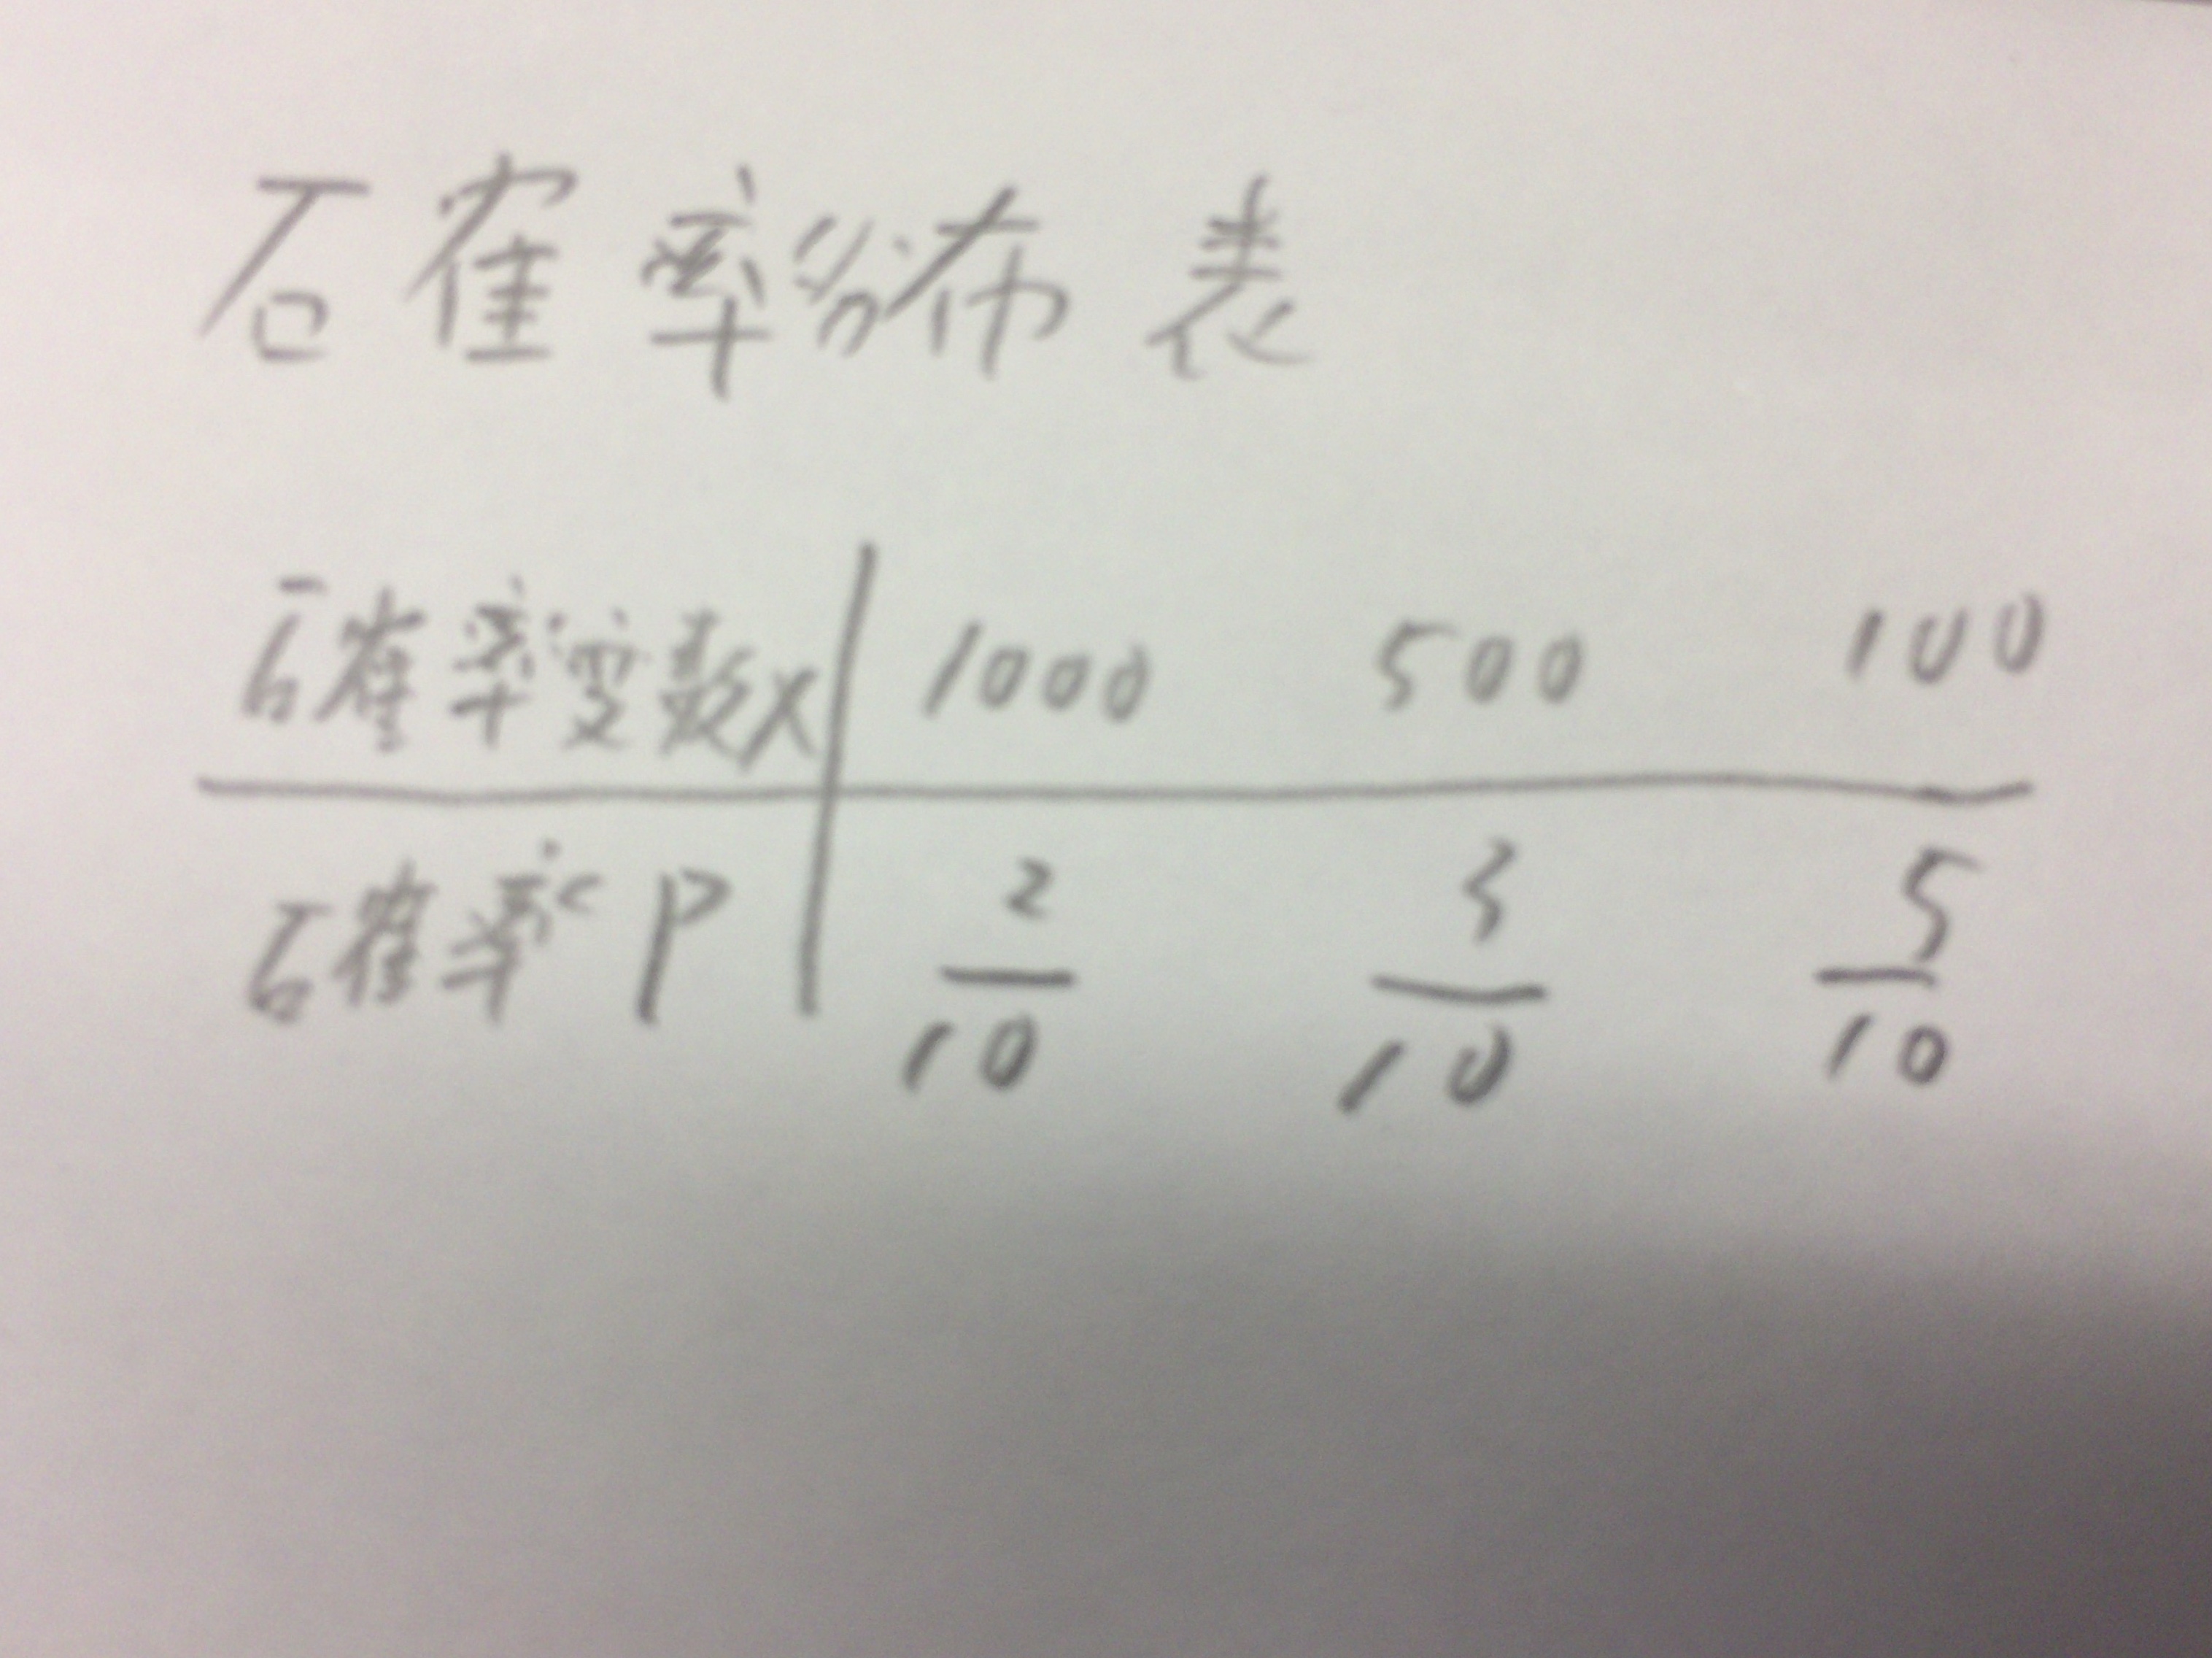 確率分布表
確率変数X 1000 500 100
確率P 2/10 3/10 5/10